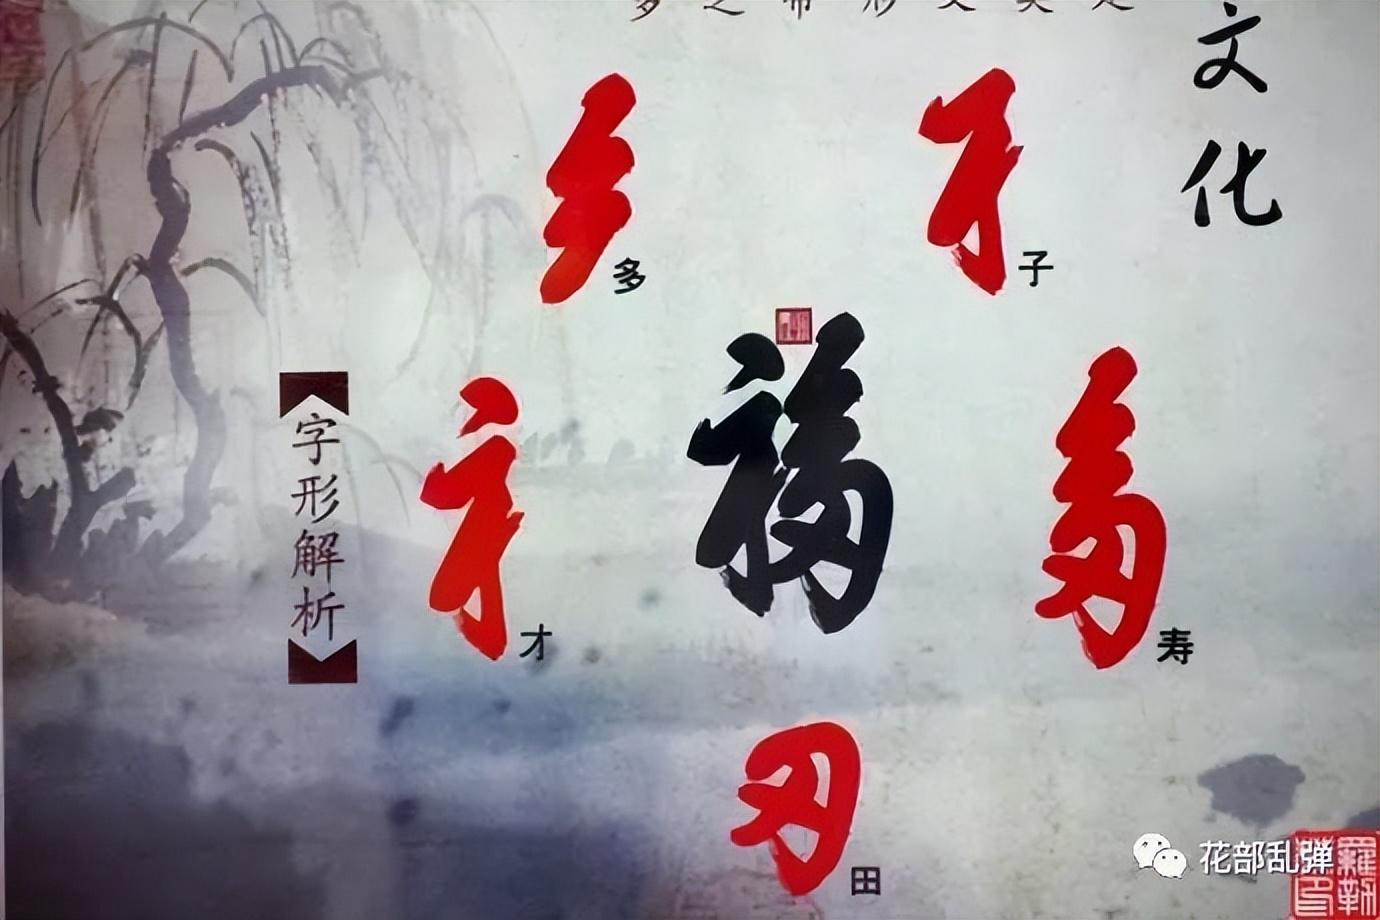 文化
多
子
福
才
寿
田
字形解析
花部乱弹